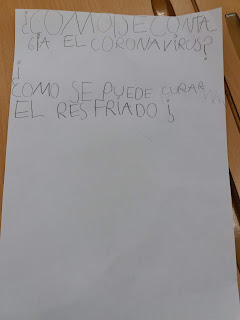 ¿COMO SE CONTA
GIA EL CORONAVIRUS?
¡
COMO SE PUEDE CURAR
EL RESFRIADO ¡